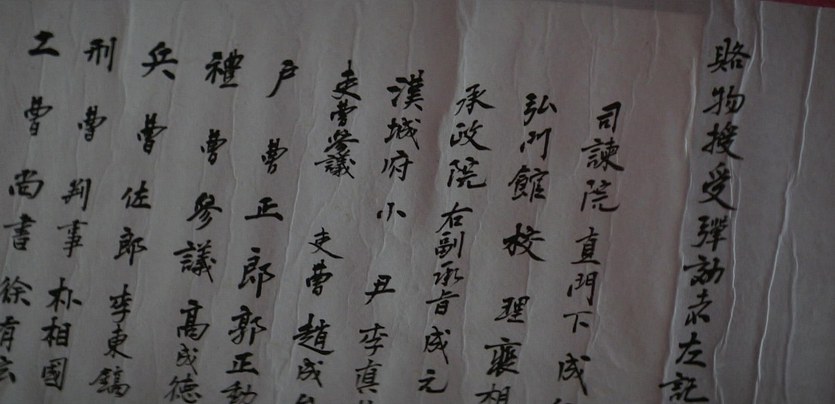 賂物授受彈劾赤左記
司諫院 直門下成
弘門館校理裵相
承政院右副承旨成元
漢城府小尹李眞
吏曹參議 吏曹趙成
戶曹正郎郭正動
禮曹參議高成德
兵曹佐郎李東鎬
刑曹判事朴相國
工曹尚書徐有